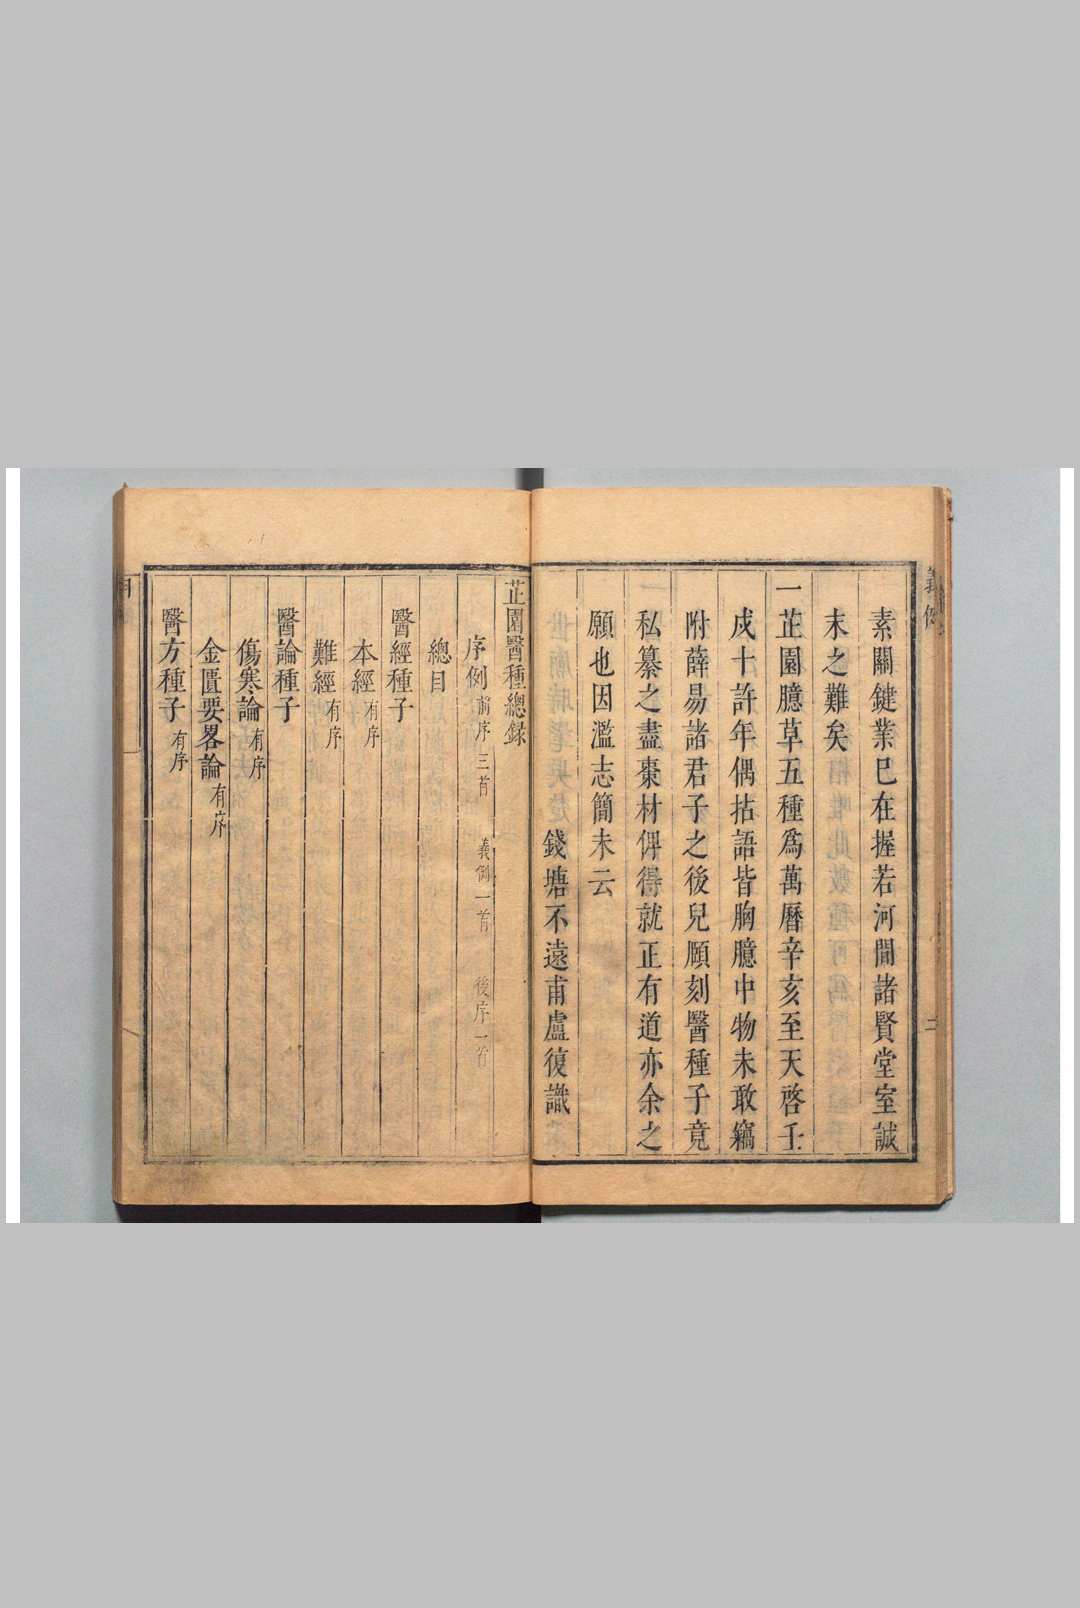 素關鍵業巳在握若河間諸賢堂室誠
未之難矣
一芷園臆草五種爲萬曆辛亥至天啓壬
戍十許年偶拈語皆胸臆中物未敢竊
附薛易諸君子之後兒願刻醫種子竟
私纂之盡棗材俾得就正有道亦余之
願也因濫志簡末云
錢塘不遠甫盧復識
芷園醫種總録
序例 前序三首 義例一首 後序一首
總目
醫經種子
本經 有序
難經 有序
醫論種子
傷寒論 有序
金匱要畧論 有序
醫方種子 有序